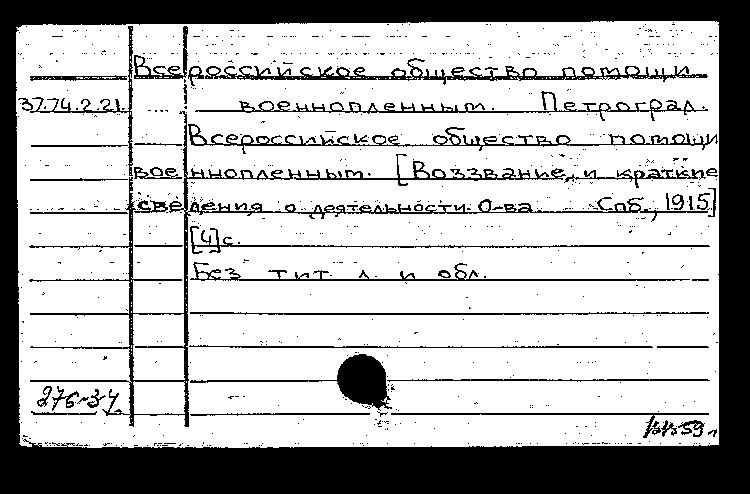 Всероссийское общество помощи
37.74.2.21. военнопленным. Петроград.
Всероссийское общество помощи
военнопленным. [Воззвание и краткие
сведения о деятельности О-ва. Спб., 1915]
[4]с.
Без тит. л. и обл.
276-34